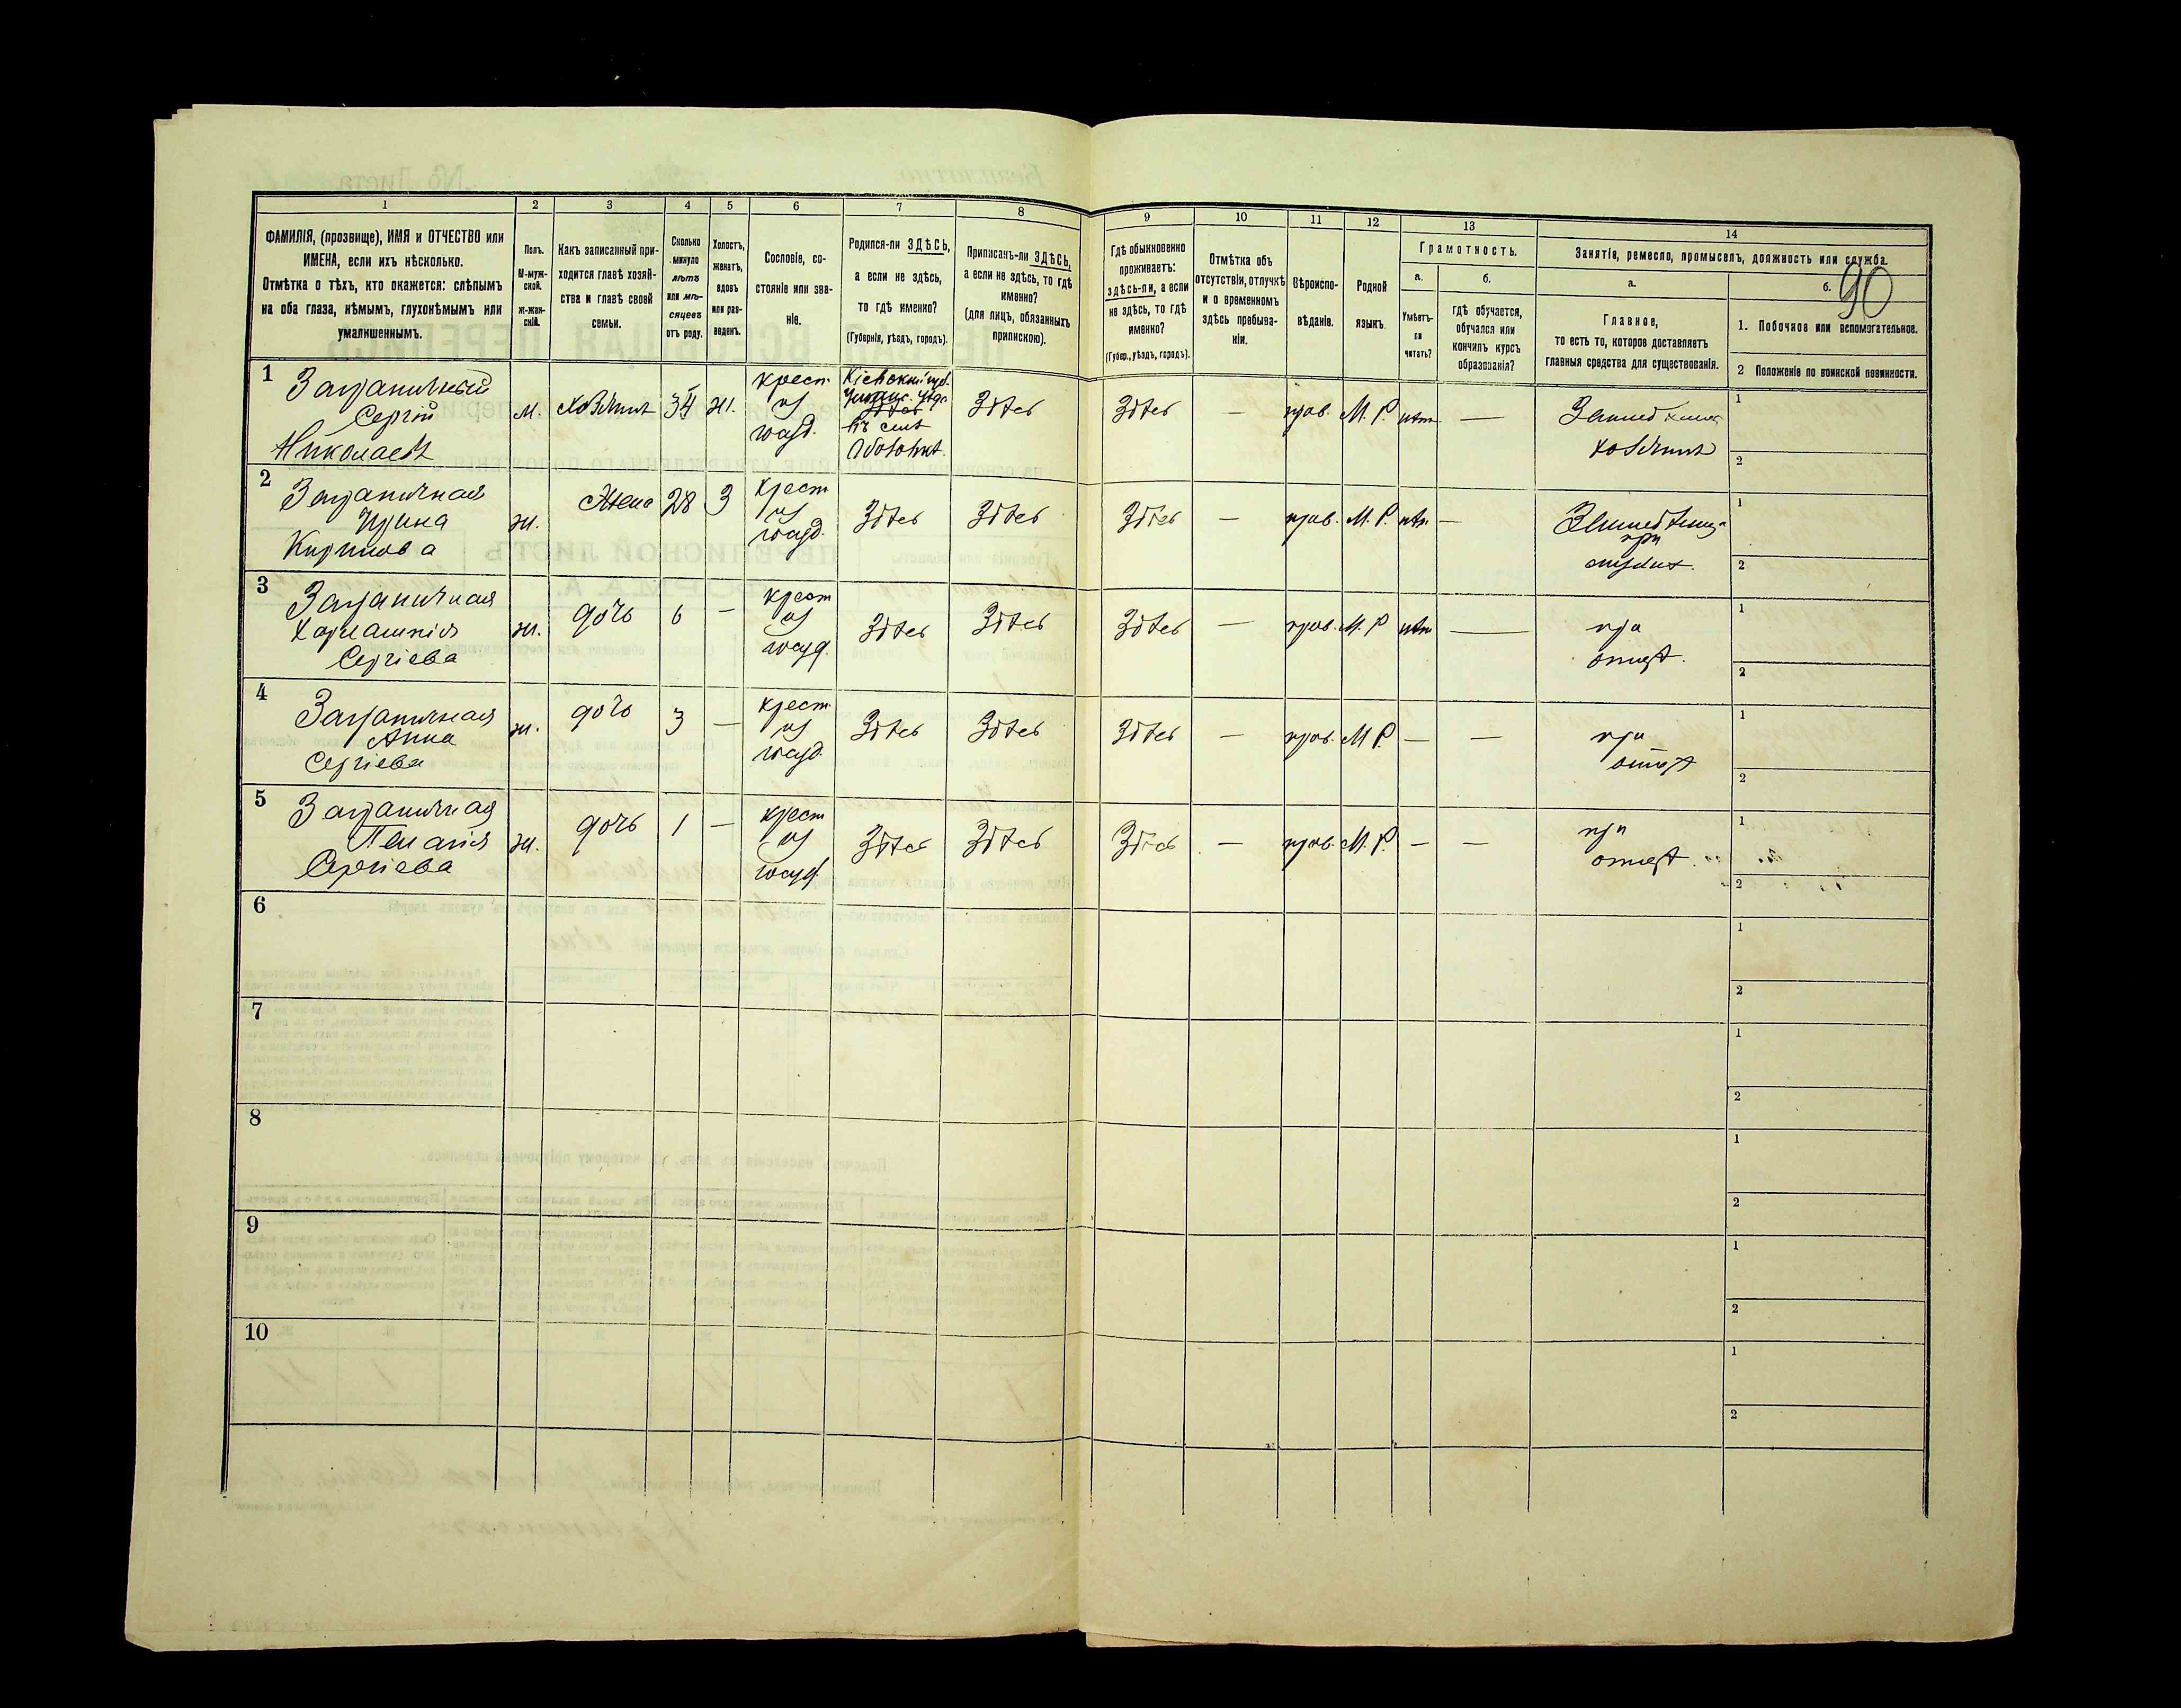 90
1
2
3
4
5
6
7
8
9
10
11
12
13
14
ФАМИЛІЯ, (прозвище), ИМЯ и ОТЧЕСТВО или
ИМЕНА, если ихъ нѣсколько.
Отмѣтка о тѣхъ, кто окажется: слѣпымъ
на оба глаза, нѣмымъ, глухонѣмымъ или
умалишеннымъ.
Полъ.
М-муж-
ской.
ж-жен-
скій.
Какъ записанный при-
ходится главѣ хозяй-
ства и главѣ своей
семьи.
Сколько
минуло
лѣтъ
или мѣ-
сяцевъ
отъ роду.
Холостъ,
женатъ,
вдовъ
или раз-
веденъ.
Сословіе, со-
стояніе или зва-
ніе.
Родился-ли ЗДѢСЬ,
а если не здѣсь,
то гдѣ именно?
(Губернія, уѣздъ, городъ).
Приписанъ-ли ЗДѢСЬ,
а если не здѣсь, то гдѣ
именно?
(для лицъ, обязанныхъ
припискою).
Гдѣ обыкновенно
проживаетъ:
здѣсь-ли, а если
не здѣсь, то гдѣ
именно?
(Губер., уѣздъ, городъ).
Отмѣтка объ
отсутствіи, отлучкѣ
и о временномъ
здѣсь пребыва-
ніи.
Вѣроиспо-
вѣданіе.
Родной
языкъ.
Грамотность.
а.
Умѣетъ-
ли
читать?
б.
гдѣ обучается,
обучался или
кончилъ курсъ
образованія?
Занятіе, ремесло, промыселъ, должность или служба.
а.
Главное,
то есть то, которое доставляетъ
главныя средства для существованія.
б.
1. Побочное или вспомогательное.
2 Положеніе по воинской повинности.
1
Заграничный
Сергій
Николаевъ
м.
хозяинъ
34
ж.
крест.
из
госуд.
Кіевской губ.
въ селѣ
здѣсь
здѣсь
—
прав.
М. Р.
нѣт
—
хозяинъ
1
2
2
Заграничная
Ирина
Кирилова
ж.
жена
28
З
крест
из
госуд.
здѣсь
здѣсь
здѣсь
—
прав.
М. Р.
нѣт
—
при
1
2
3
Заграничная
Харлампія
Сергіева
ж.
дочь
6
—
крест
из
госуд.
здѣсь
здѣсь
здѣсь
—
прав.
М. Р
нѣт
—
при
отцѣ.
1
2
4
Заграничная
Анна
Сергіева
ж.
дочь
3
—
крест.
из
госуд.
здѣсь
здѣсь
здѣсь
—
прав.
М. Р.
—
—
при
отцѣ
1
2
5
Заграничная
Пелагія
Сергіева
ж.
дочь
1
—
крест
из
госуд.
здѣсь
здѣсь
здѣсь
—
прав.
М. Р.
—
—
при
отцѣ.
1
2
6
1
2
7
1
2
8
1
2
9
1
2
10
1
2